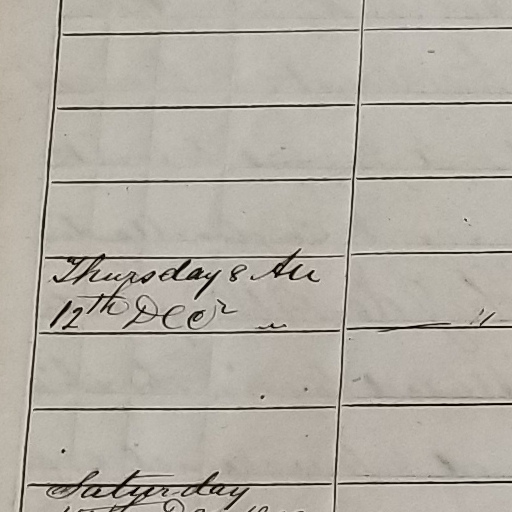 Thursday 8 AM
12th Decr "
"
Saturday